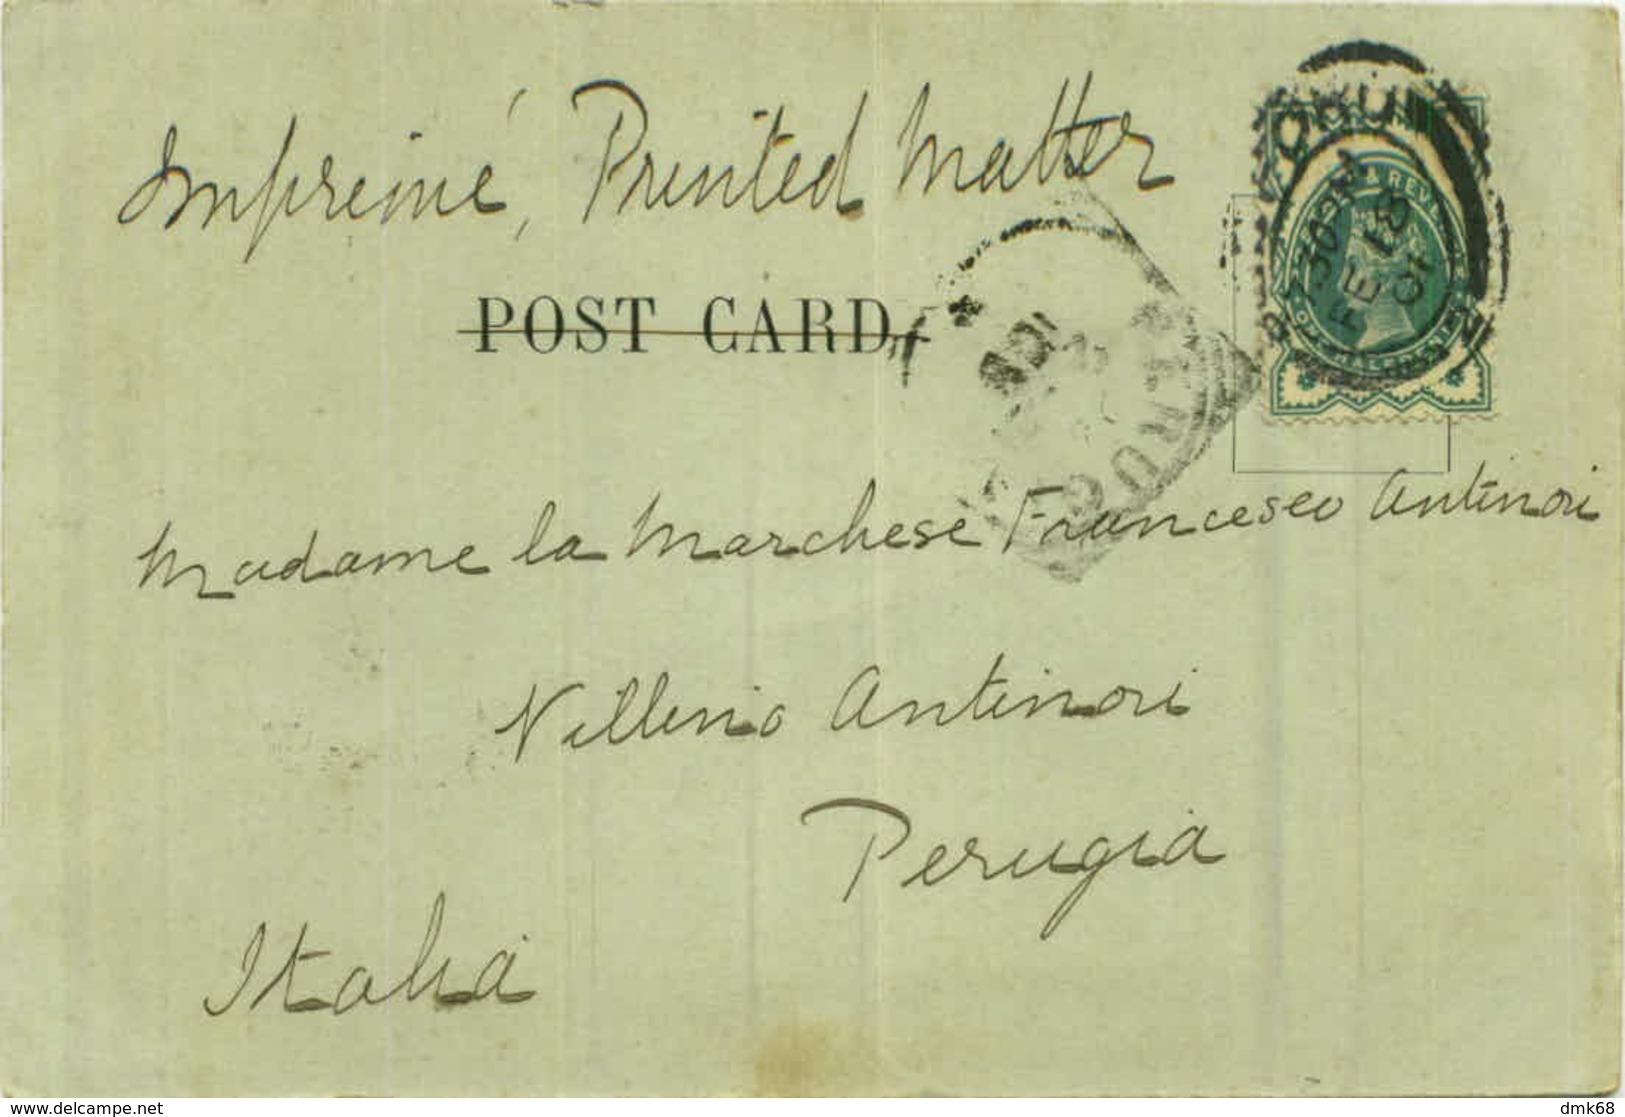 Imprimé, Printed Matter
POST CARD
7 30 PM
FE 18
01
& REVE
Madame la Marchese Francesco Antinori
Villino Antinori
Perugia
Italia
delcampe.net
dmk68